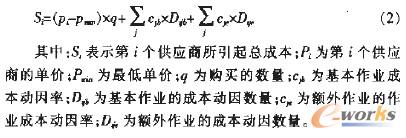 Sᵢ=(pᵢ-pₘᵢₙ)×q+∑ⱼ cⱼb×Dᵢⱼb+∑ⱼ cⱼₑ×Dᵢⱼₑ (2)
其中:Sᵢ表示第 i 个供应商所引起总成本;Pᵢ为第 i 个供应
商的单价;Pₘᵢₙ为最低单价;q 为购买的数量;cⱼb为基本作业成
本动因率;Dᵢⱼb为基本作业的成本动因数量;cⱼₑ为额外作业的作
业成本动因率;Dᵢⱼₑ为额外作业的成本动因数量。
e-works